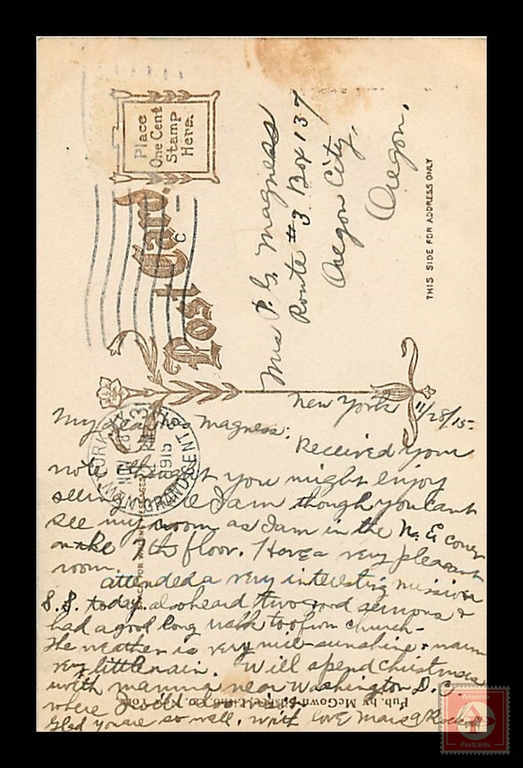 Place
One Cent
Stamp
Here.
Post Card.
THIS SIDE FOR ADDRESS ONLY
Mrs P. G. Magness
Route #3 Box 137
Oregon City,
Oregon.
New York 11/28/15.
My dear Mrs Magness:
Received your
note thought you might enjoy
seeing where I am though you cant
see my room as I am in the N. E corner
on the 7th floor. Have a very pleasant
room.
attended a very interesting mission
S. S. today. also heard two good sermons &
had a good long walk to & from church.
The weather is very nice - sunshine & warm
very little rain. Will spend Christmas
with mamma near Washington D. C.
where
Glad you are so well. with love
Pub. by McGown-Silsbee Litho. Co. N.Y.
NEW YORK, N.Y.
GRAND CENTRAL STA.
NOV 28
1915
Antonio
Postcards